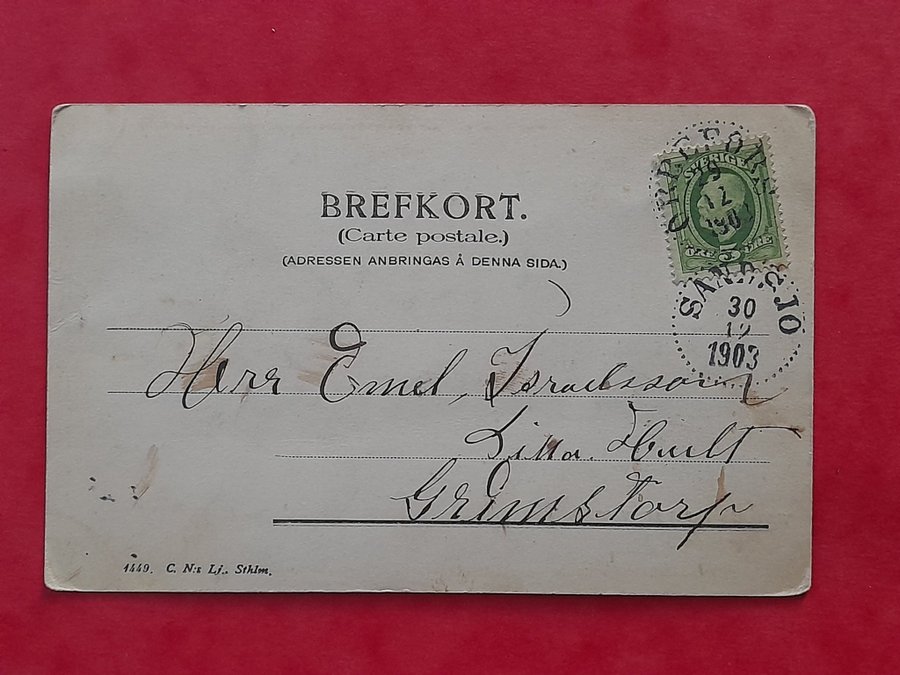 BREFKORT.
(Carte postale.)
(ADRESSEN ANBRINGAS Å DENNA SIDA.)
SVERIGE
29
12
1903
SAND SJÖ
30
12
1903
Herr Emel, Israelsson
Lilla. Hult
Grimstorp
1449. C. N:s Lj., Sthlm.